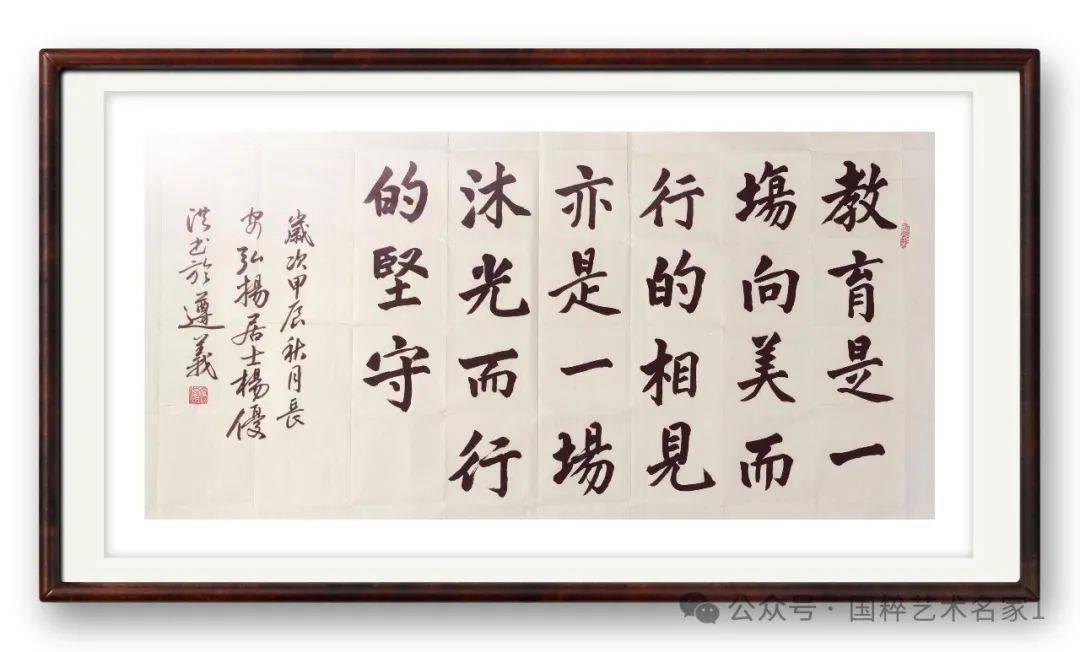 教育是一
塲向美而
行的相見
亦是一場
沐光而行
的堅守
歲次甲辰秋月長
安弘揚居士楊優
洪书於遵義
公众号 · 国粹艺术名家1